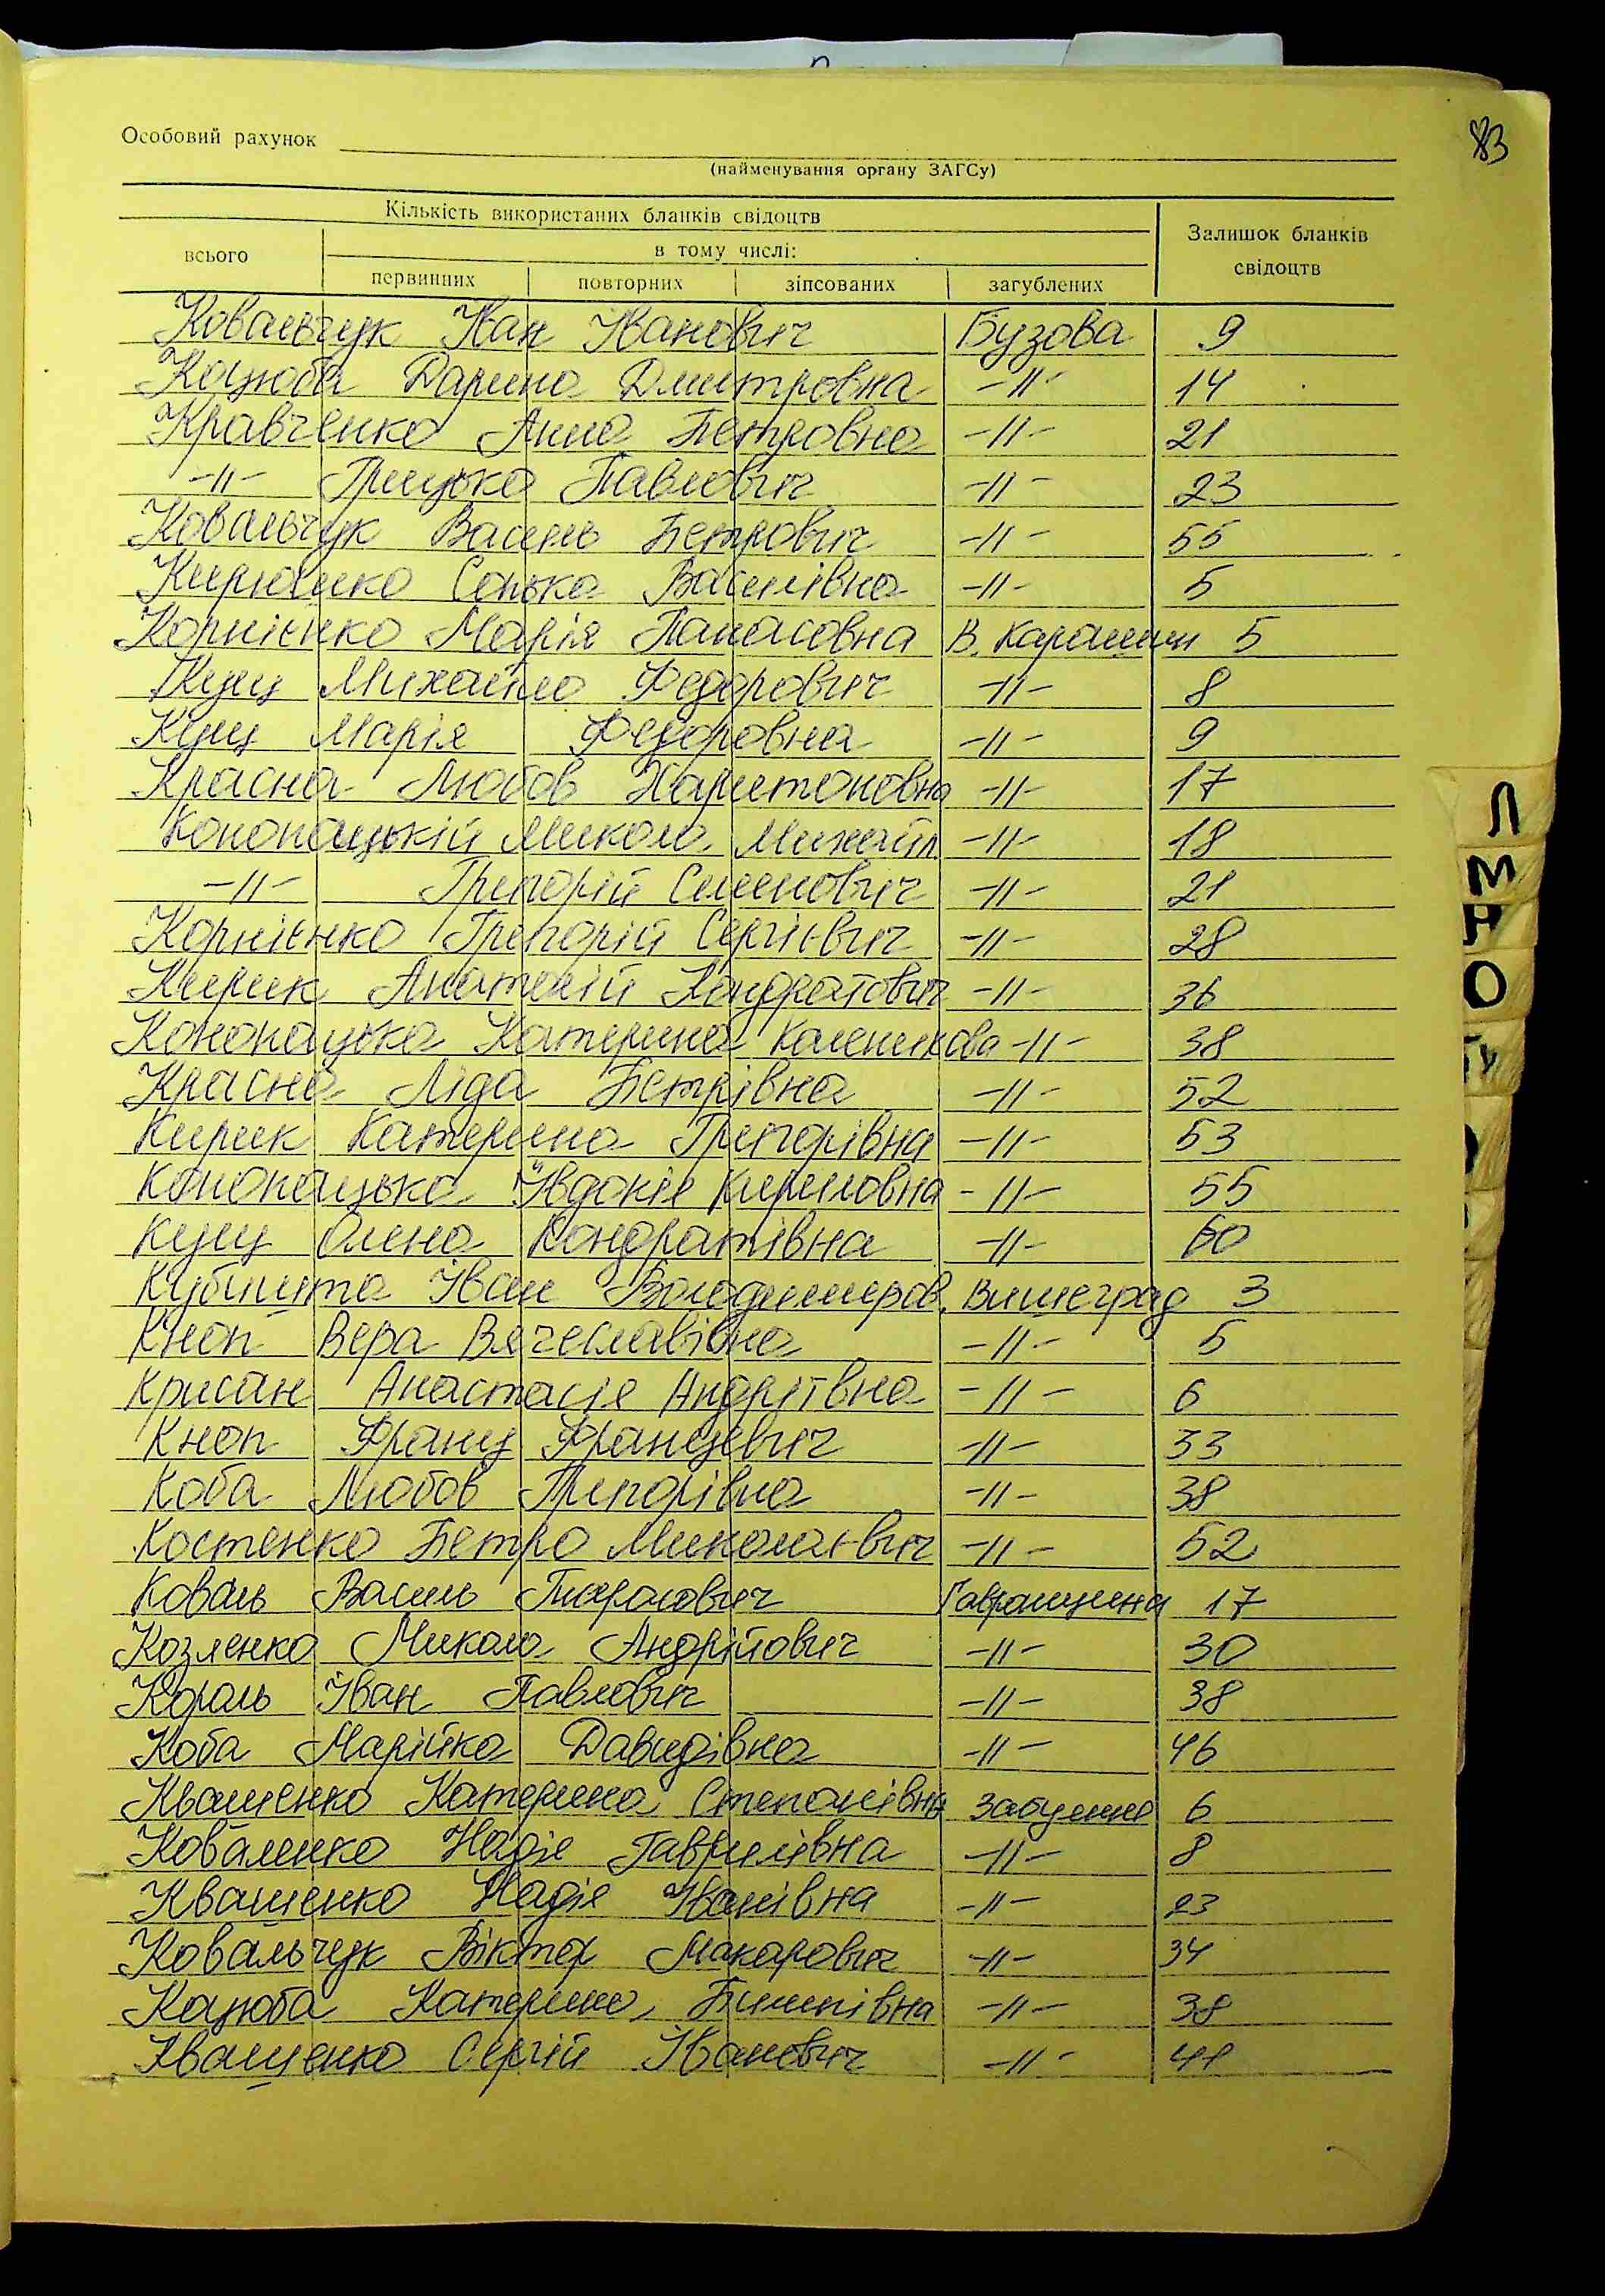 83
Особовий рахунок
(найменування органу ЗАГСу)
Кількість використаних бланків свідоцтв
Залишок бланків свідоцтв
всього
в тому числі:
первинних повторних зіпсованих загублених
Ковальчук Іван Іванович Бузова 9
Коцюба Дарина Дмитровна -11- 14
Кравченко Анна Петровна -11- 21
-11- Грицько Павлович -11- 23
Ковальчук Василь Петрович -11- 55
Сонька Василівна -11- 5
Корнієнко Марія Панасовна В. Карашин 5
Куц Михайло Федорович -11- 8
Куц Марія Федоровна -11- 9
Красна Любов Харитоновна -11- 17
Конопацький Микола Михайл -11- 18
-11- Григорій Семенович -11- 21
Корнієнко Григорій Сергієвич -11- 28
Кирик Анатолій Кондратович -11- 36
Конопацька Катерина -11- 38
Красна Ліда Петрівна -11- 52
Кирик Катерина Григорівна -11- 53
Конопацька Івдокія Кириловна -11- 55
Куц Олена Кондратівна -11- 60
Кубишта Іван Володимиров. Вишеград 3
Кноп Вера Вячеславівна -11- 5
Крисан Анастасія Андріївна -11- 6
Кноп Франц Францевич -11- 33
Коба Любов Григорівна -11- 38
Костенко Петро Миколаєвич -11- 52
Коваль Василь Тарасович Гавронщина 17
Козленко Микола Андрійович -11- 30
Король Іван Павлович -11- 38
Коба Марійка Давидівна -11- 46
Квашенко Катерина Степанівна Забуяння 6
Коваленко Надія Гаврилівна -11- 8
Квашенко Надія Іванівна -11- 23
Ковальчук Віктор Макарович -11- 34
Коцюба Катерина Пилипівна -11- 38
Кващенко Сергій Іванович -11- 41
Л
М
Н
О